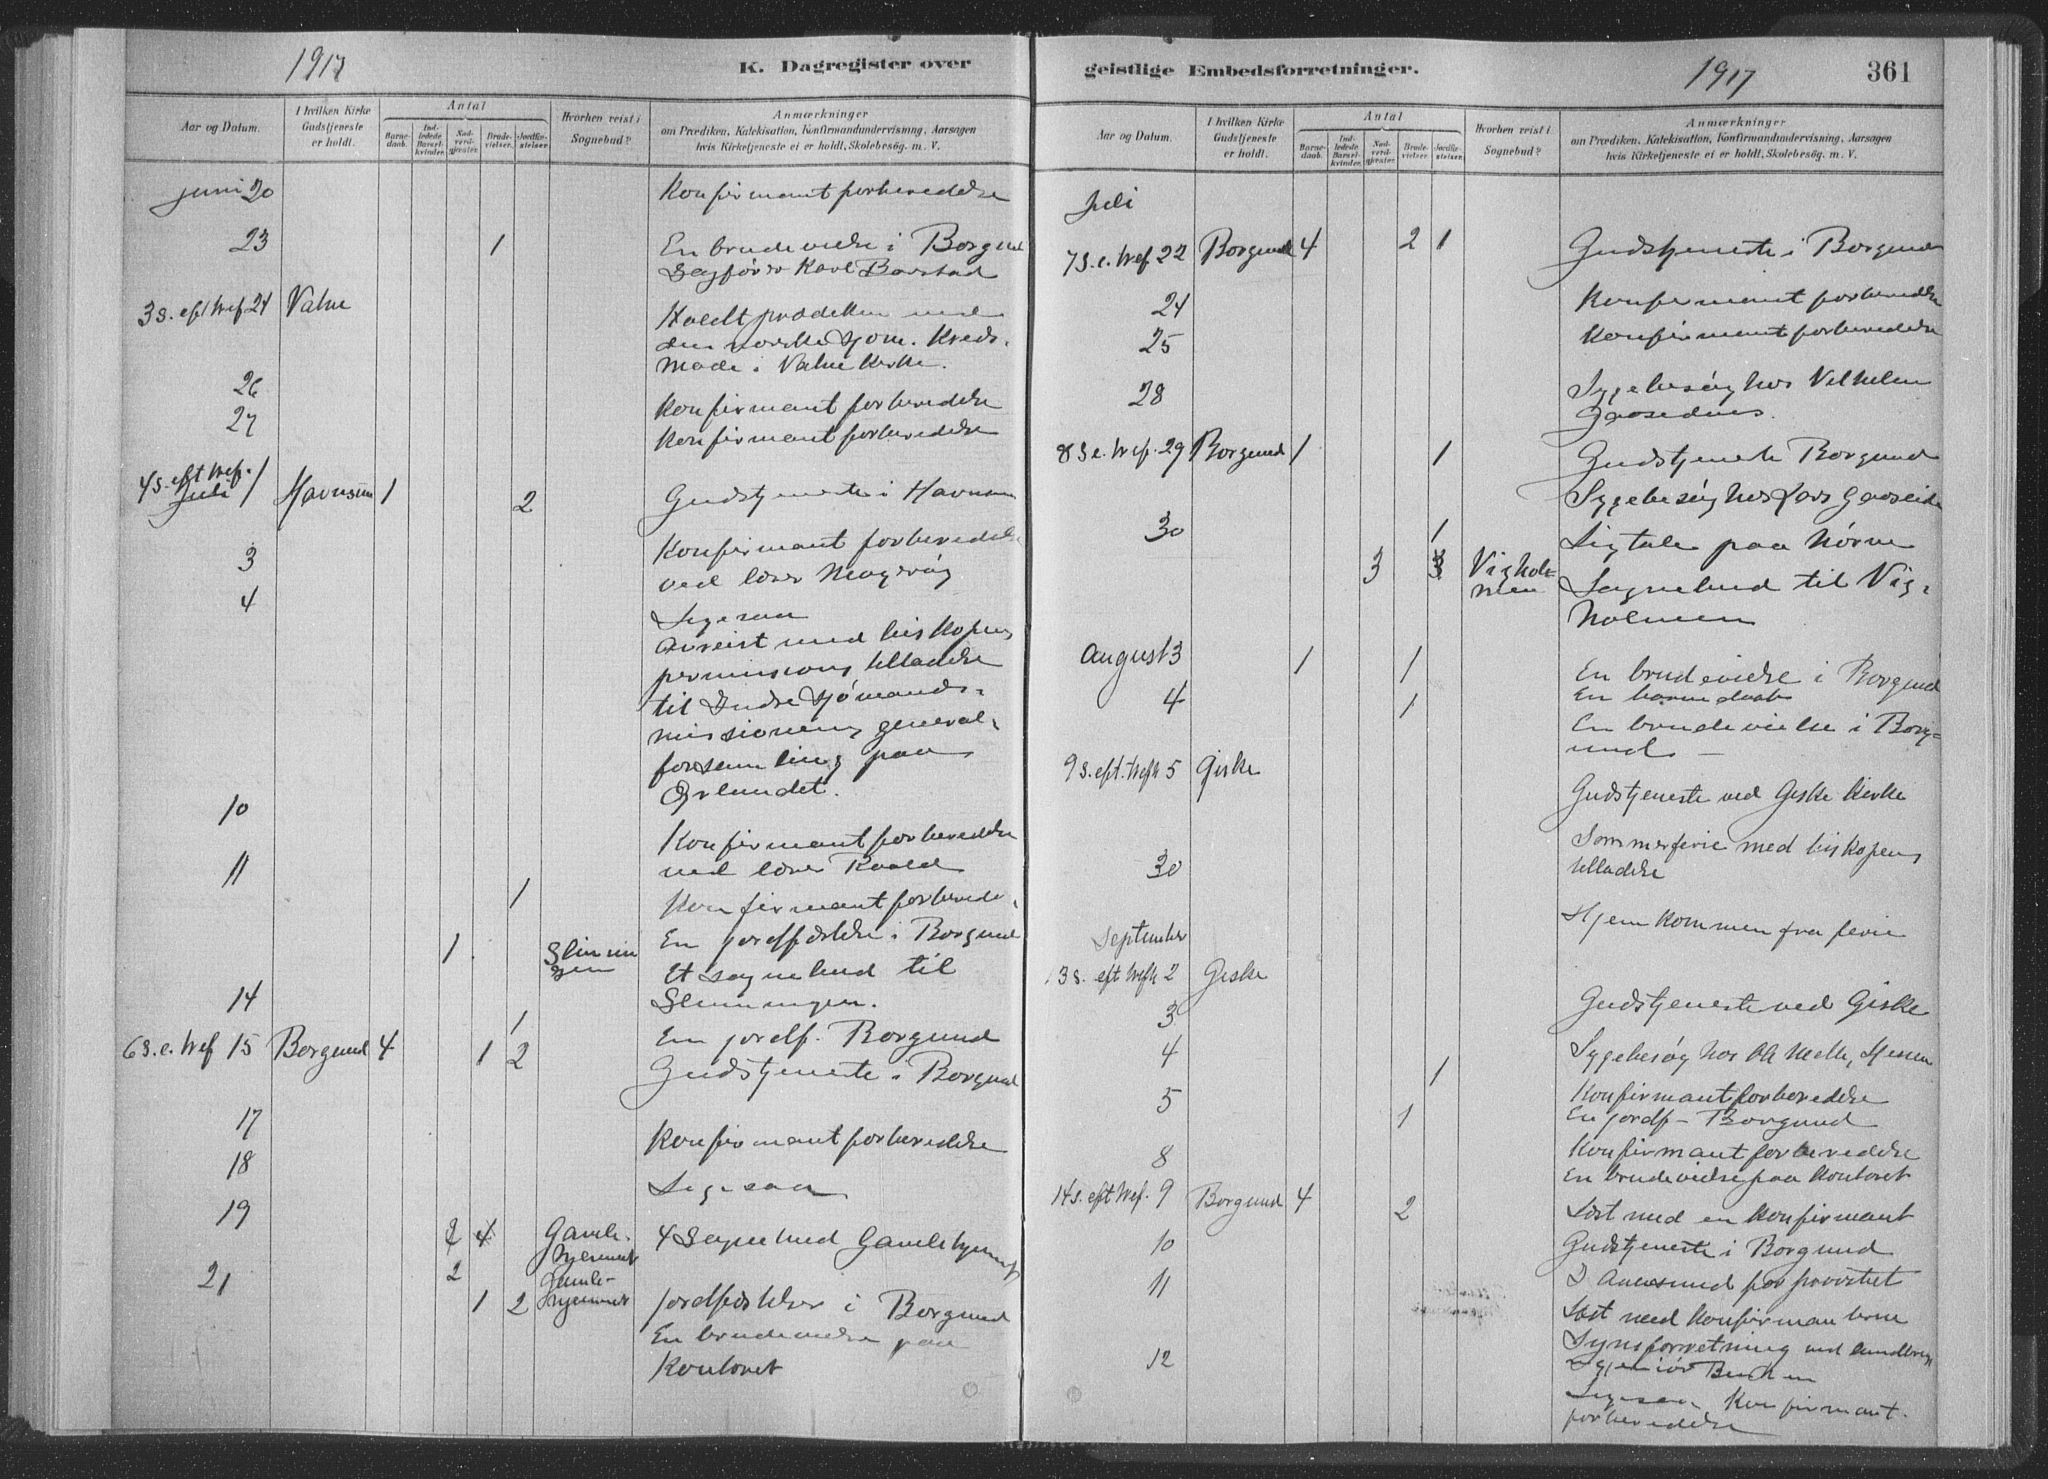 1917
K. Dagregister over
Aar og Datum.
I hvilken Kirke Gudstjeneste er holdt.
Antal
Barne-daab.
Ind-ledede Barsel-kvinder.
Nad-verd-gjester.
Brude-vielser.
Jordfæ-stelser.
Hvorhen reist i Sognebud?
Anmærkninger
om Prædiken, Katekisation, Konfirmandundervisning, Aarsagen
hvis Kirketjeneste ei er holdt, Skolebesøg. m. V.
juni 20 Konfirmantforberedelse
23 1 En brudevielse i Borgund
Sagfører Karl Barstad
3 s. eft tref 24 Valne Holdt prædiken ved
den norske sjøm. Kreds-
møde i Valne Kirke.
26 Konfirmantforberedelse
27 Konfirmantforberedelse
4 s. eft tref.
Juli 1 Havnsun 1 2 Gudstjeneste i Havnsun
3 Konfirmantforberedelse
ved lærer Magerøy
4 Ligesaa
Avreist med biskopens
permissions tilladelse
til Indre Sjømands-
missionens general-
forsamling paa
Ørlandet.
10 Konfirmantforberedelse
ved lærer Roald
11 Konfirmantforberede.
1 En jordfæstelse i Borgund
1 Slinnin
gen Et sognebud til
Slinningen.
14 1 En jordf. Borgund
6 s. e. tref 15 Borgund 4 1 2 Gudstjeneste i Borgund
17 Konfirmantforberedelse
18 Ligesaa
19 4 Gamle-
hjemmet 4 Sognebud Gamlehjemmet
21 2 Gamle-
hjemmet
1 2 Jordfæstelser i Borgund
En brudevielse paa
Kontoret
geistlige Embedsforretninger.
1917
361
Aar og Datum.
I hvilken Kirke Gudstjeneste er holdt.
Antal
Barne-daab.
Ind-ledede Barsel-kvinder.
Nad-verd-gjester.
Brude-vielser.
Jordfæ-stelser.
Hvorhen reist i Sognebud?
Anmærkninger
om Prædiken, Katekisation, Konfirmandundervisning, Aarsagen
hvis Kirketjeneste ei er holdt, Skolebesøg m. V.
Juli
7 s. e. tref 22 Borgund 4 2 1 Gudstjeneste i Borgund
24 Konfirmantforberedelse
25 Konfirmantforberedelse
28 Sygebesøg hos Vilhelm
8 s e. tref. 29 Borgund 1 1 Gudstjeneste Borgund
Sygebesøg hos Lars Gaaseide
30 1 Ligtale paa Nørve
3 3 Vighol-
men Sognebud til Vig-
holmen
August 3 1 1 En brudevielse i Borgund
En barnedaab
4 1 En brudevielse i Borg-
und
9 s. eft. trefh 5 Giske Gudstjeneste ved Giske Kirke
Sommerferie med biskopens
tilladelse
30 Hjemkommen fra ferie
September
13 s. eft trefh 2 Giske Gudstjeneste ved Giske
3 Sygebesøg hos
4 Konfirmantforberedelse
1 En jordf - Borgund
5 Konfirmantforberedelse
1 En brudevielse paa Kontoret
8 Læst med en Konfirmant
14 s. eft tref. 9 Borgund 4 2 Gudstjeneste i Borgund
10 I Aalesund for provstiet
11 Læst med Konfirmanterne
Synsforretning ved landbrugs
12 Ligesaa Konfirmant-
forberedelse